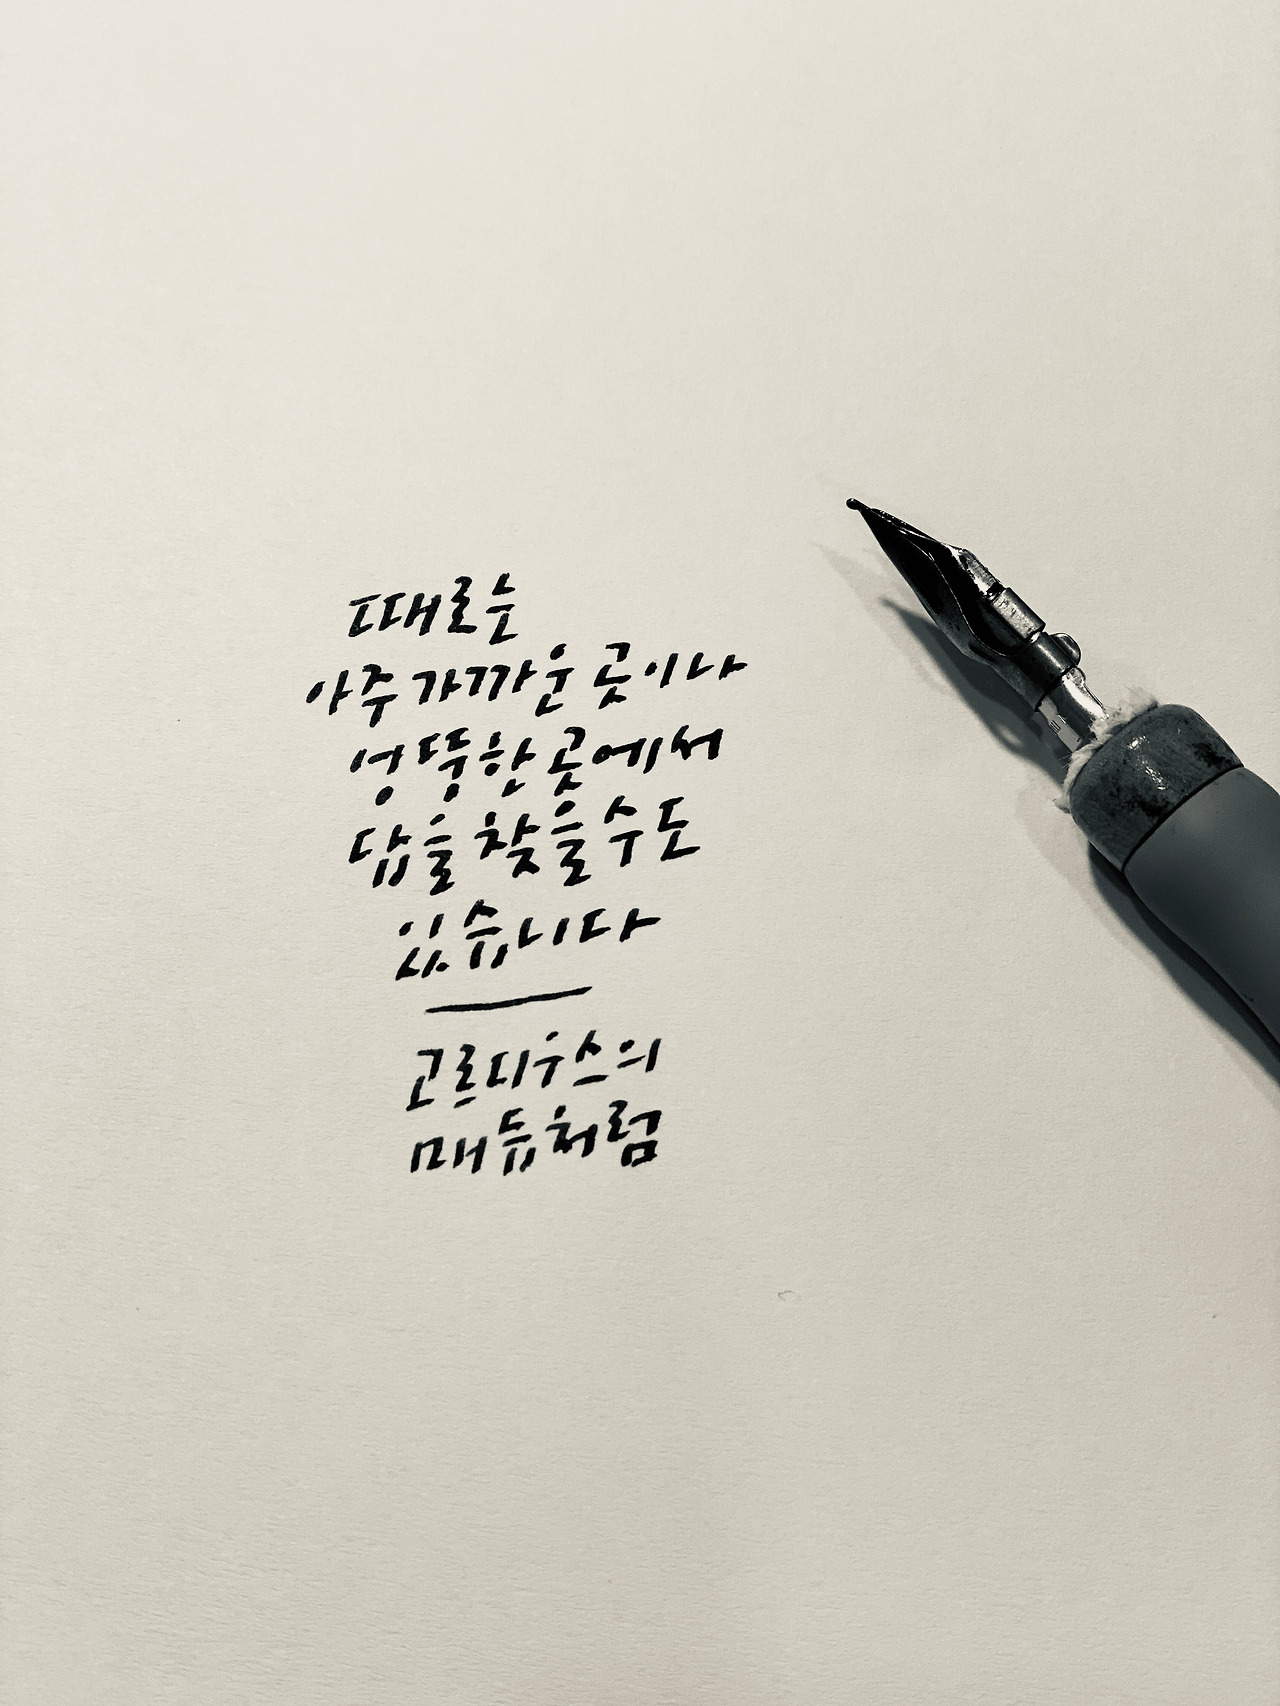 때로는
아주 가까운 곳이나
엉뚱한 곳에서
답을 찾을 수도
있습니다
고르디우스의
매듀처럼